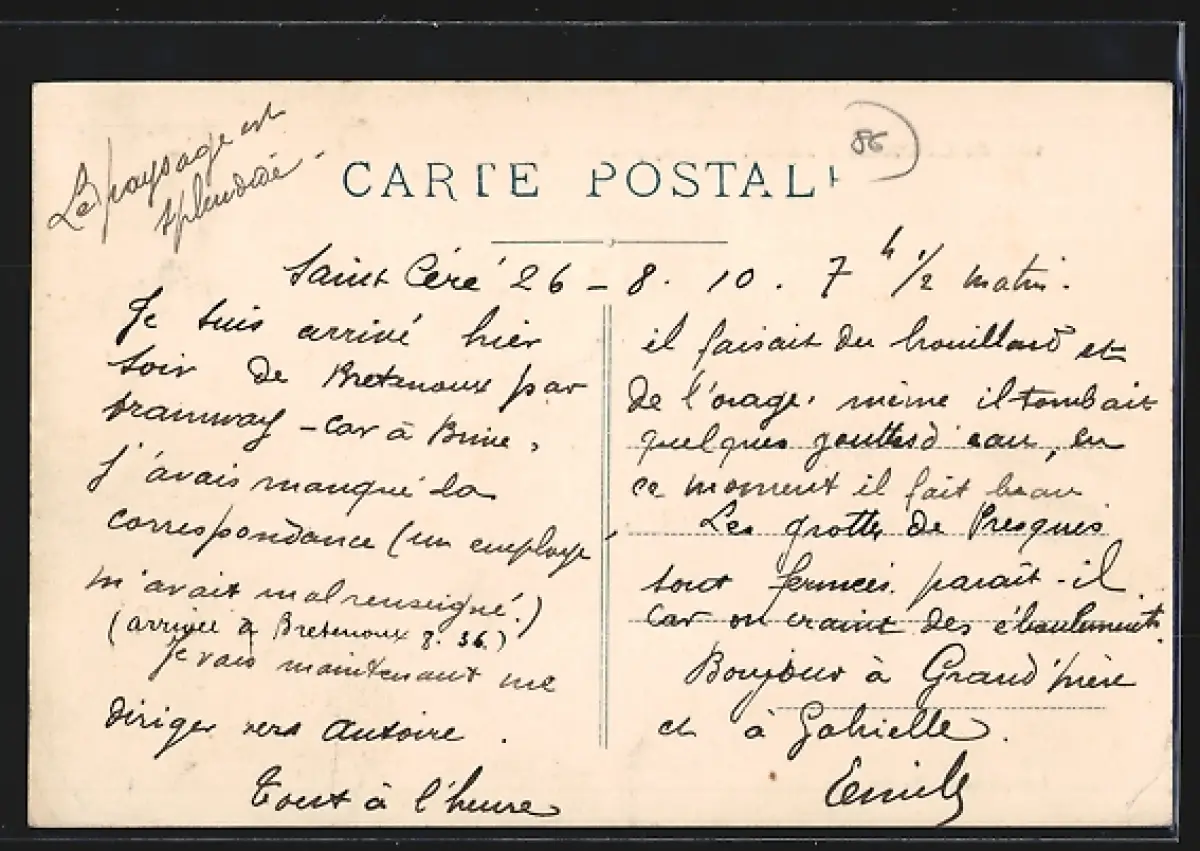 Le paysage est
splendide -
CARTE POSTALE
86
Saint Céré 26 - 8. 10. 7 h 1/2 matin.
Je suis arrivé hier
soir de Bretenoux par
tramway - car à Brive,
j'avais manqué la
correspondance (un employé
m'avait mal renseigné.)
(arrivée à Bretenoux 8. 36.)
Je vais maintenant me
diriger vers Autoire.
Tout à l'heure
il faisait du brouillard et
de l'orage. même il tombait
quelques gouttes d'eau, en
ce moment il fait beau
Les grottes de Presques
sont fermées parait-il
car on craint des éboulements.
Bonjour à Grand'mère
et à Gabrielle.
Emile